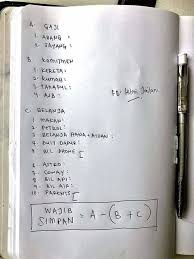 A. GAJI
1. ABANG :
2. SAYANG :
B. KOMITMEN
1. KERETA :
2. RUMAH :
3. TAKAFUL :
4. AJB :
C. BELANJA
1. MAKAN :
2. PETROL :
3. BELANJA HANA + AISYAH :
4. DUIT DAPUR :
5. BIL PHONE : [
6. ASTRO :
7. COWAY :
8. BIL API :
9. BIL AIR :
10. PARENTS : [
WAJIB SIMPAN = A - (B + C)
FB: